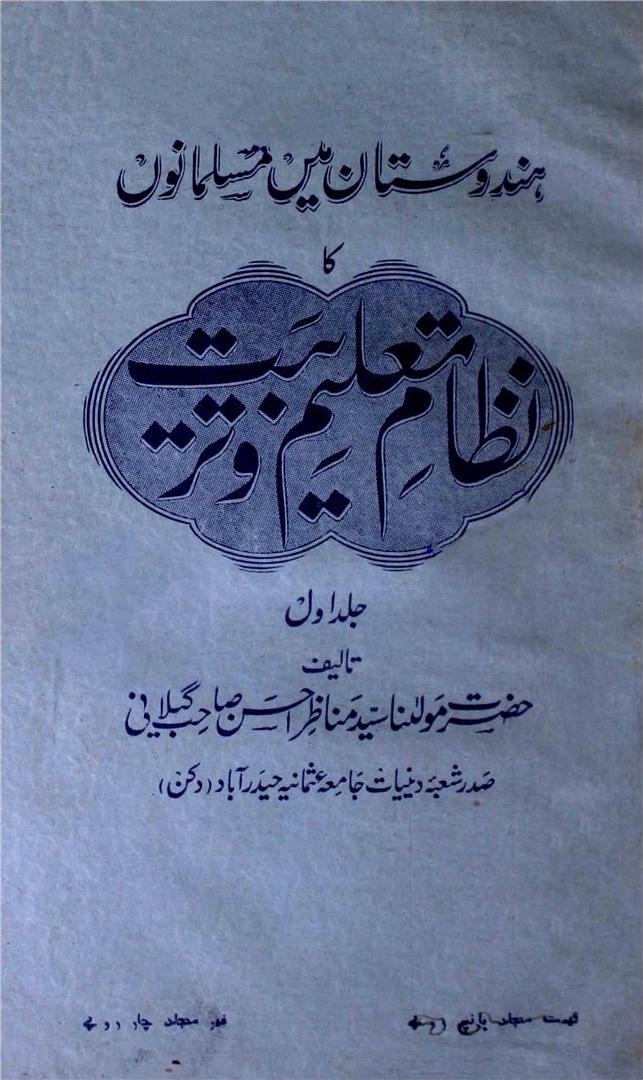 ہندوستان میں مسلمانوں
کا
نظامِ تعلیم و تربیت
جلد اول
تالیف
حضرت مولٰنا سیّد مناظر احسن صاحب گیلانی
صدر شعبۂ دینیات جامعہ عثمانیہ حیدرآباد (دکن)
قیمت مجلد پانچ روپے
غیر مجلد چار روپے